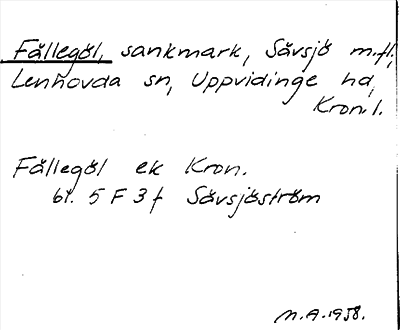 Fållegöl, sankmark, Sävsjö m.fl,
Lenhovda sn, Uppvidinge hd,
Kron.l.
Fållegöl ek Kron.
bl. 5 F 3 f Sävsjöström
M.A. 1958.